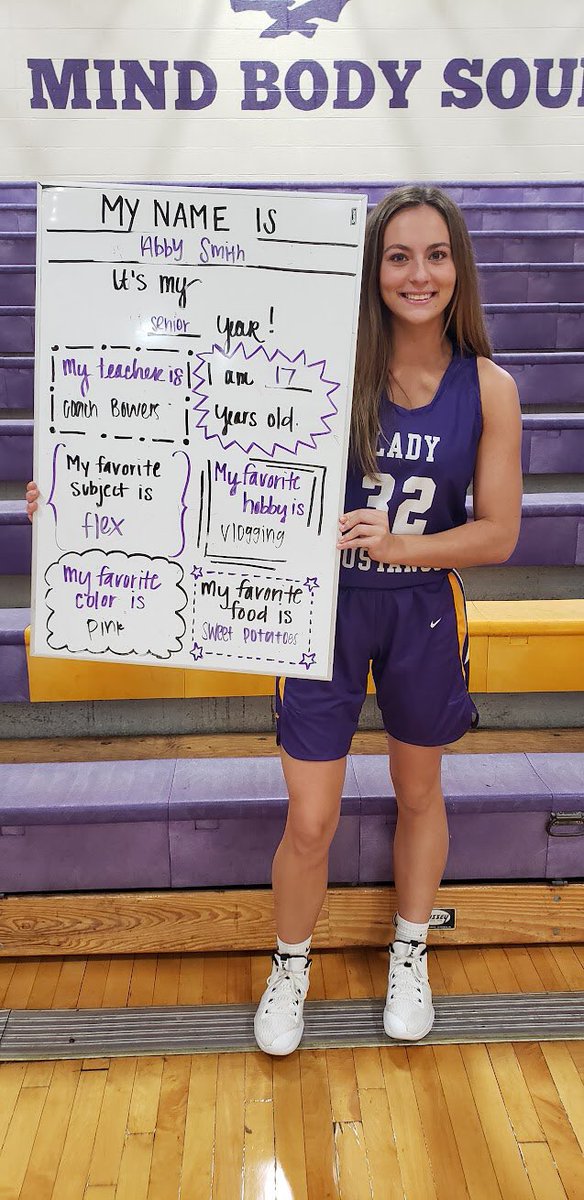 MIND BODY SOU
MY NAME IS
Abby Smith
It's my
senior year!
My teacher is
coach Bowers
I am 17
years old.
My favorite
subject is
flex
My favorite
hobby is
vlogging
My favorite
color is
pink
My favorite
food is
sweet potatoes
LADY
32
USTANGS